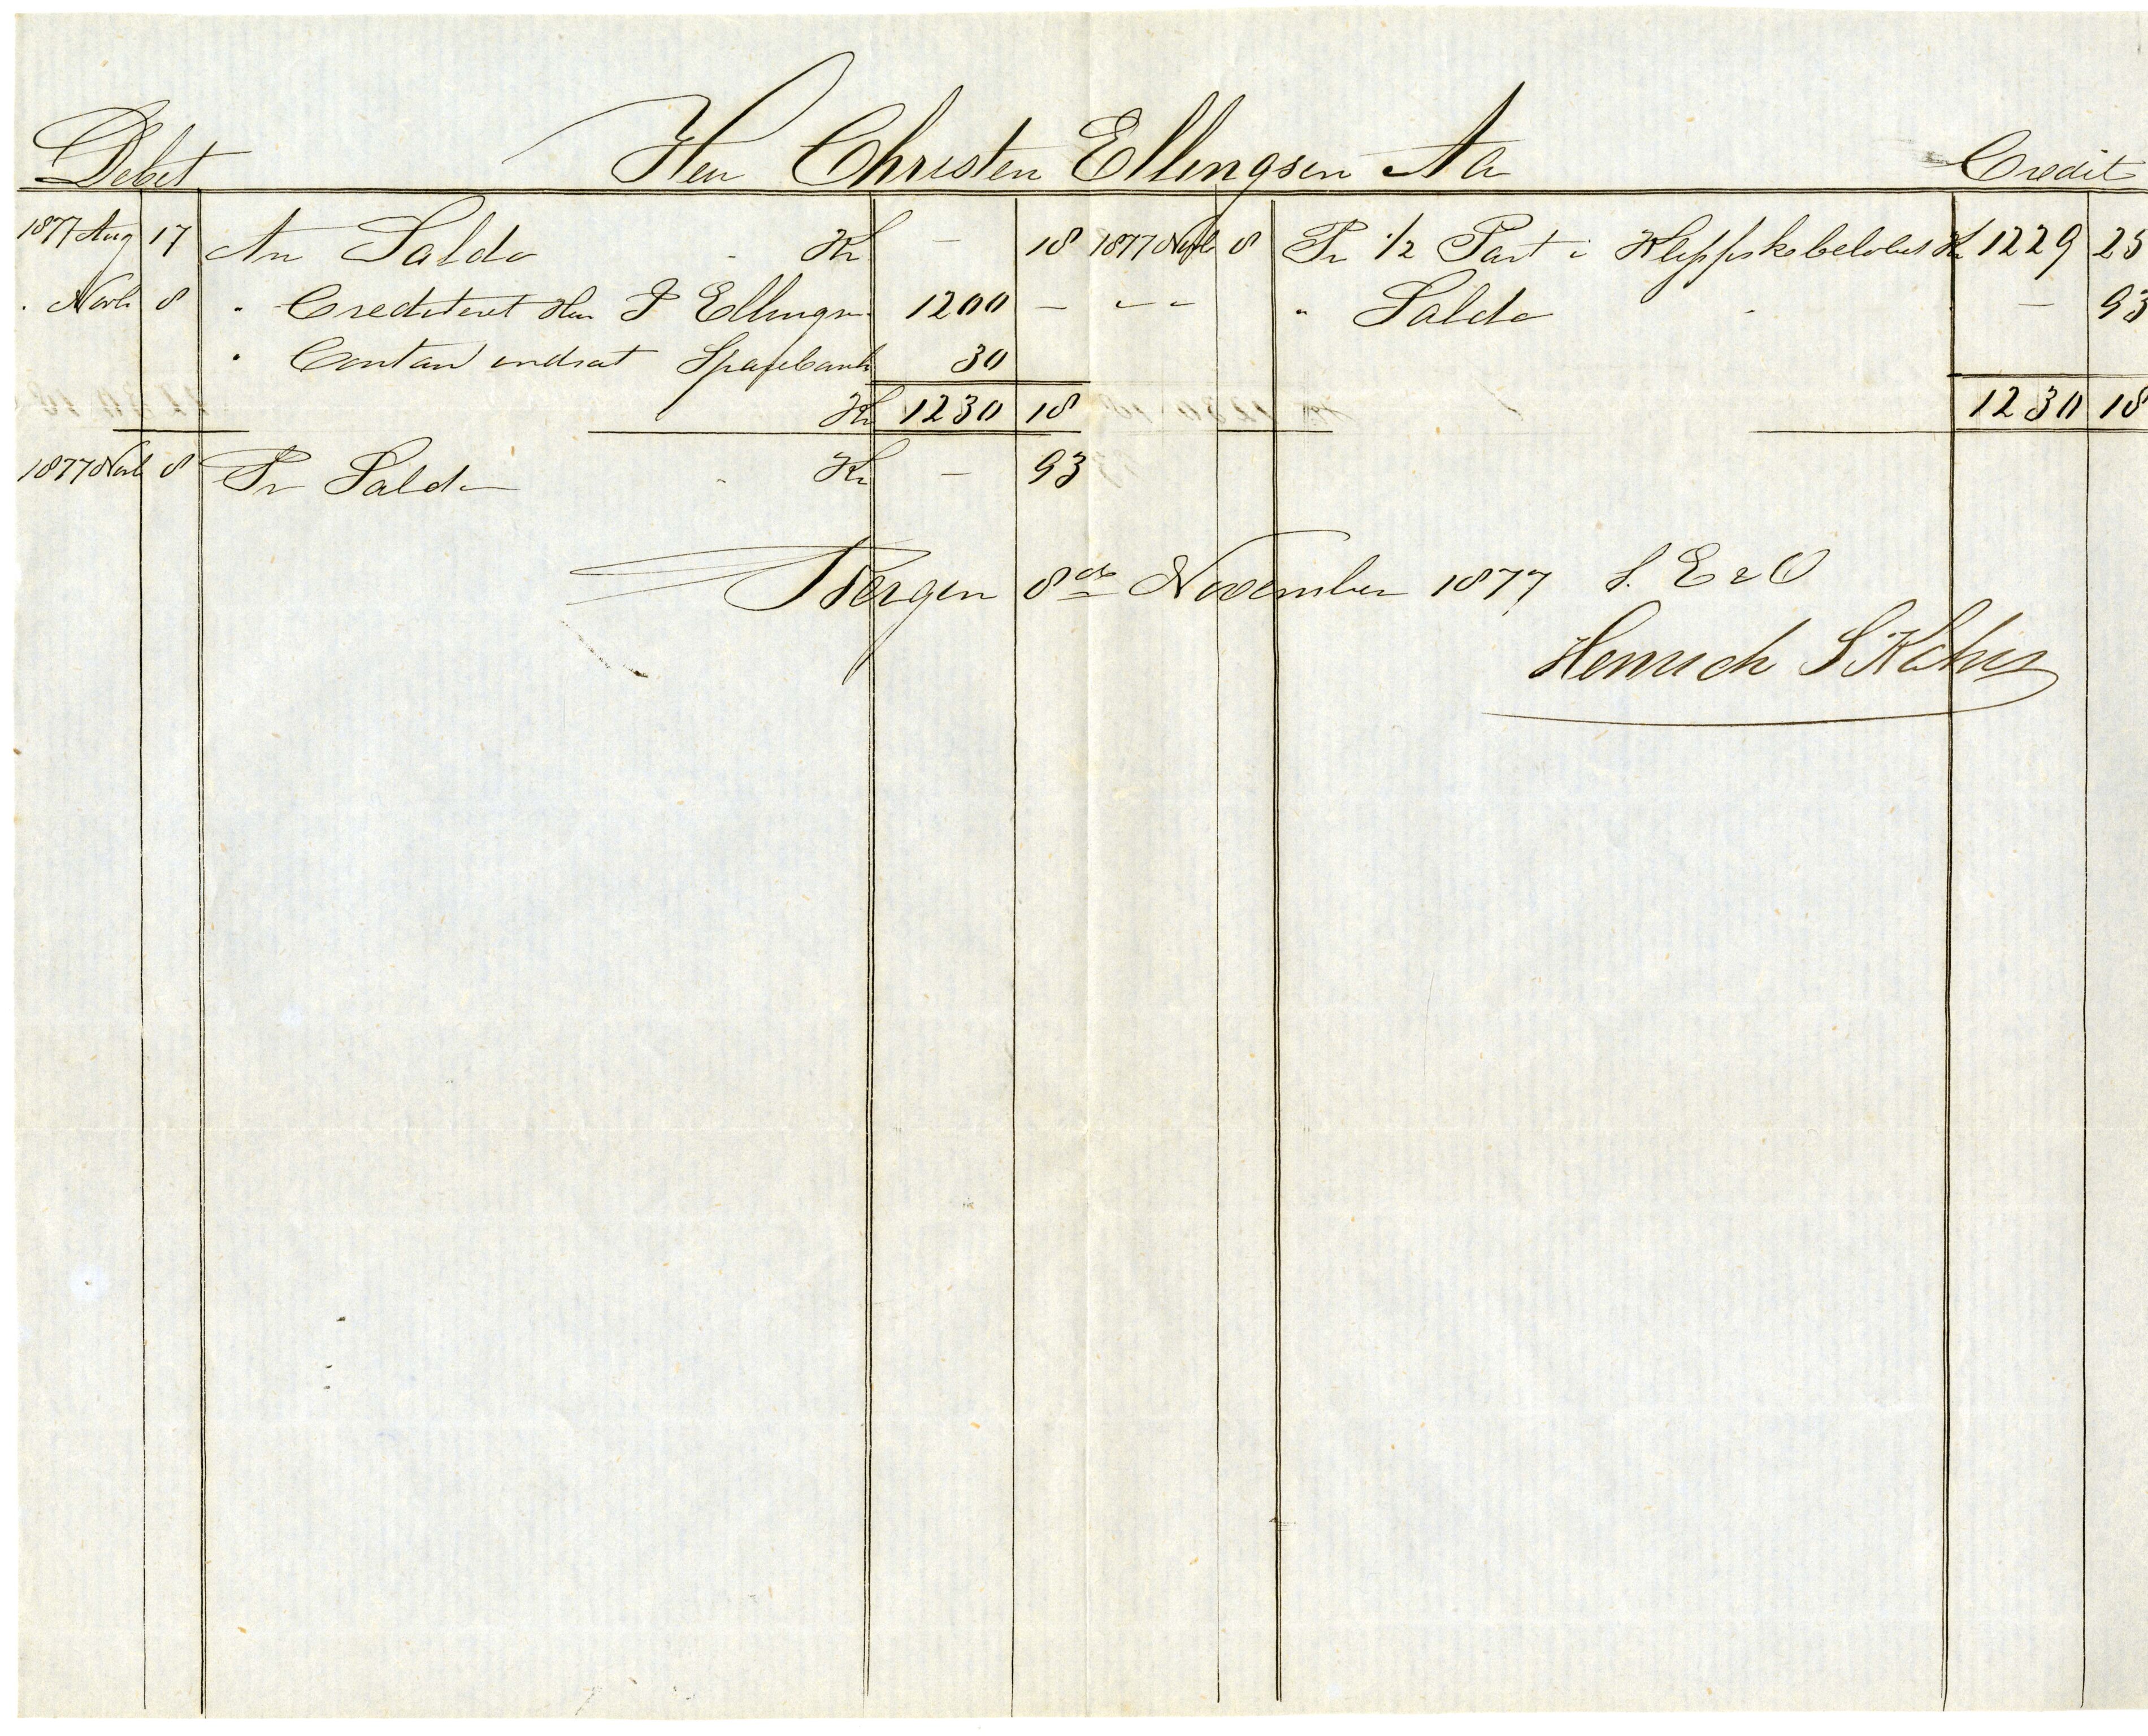 Debet Herr Christen Ellingsen Aa Credit
1877 Aug 17 An Saldo Kr - 18 1877 Novb 8 Pr 1/2 Part i Klippfiskebeløbet Kr 1229 25
" Novb 8 " Crediteret Herr P Ellingsen 1200 - - - " Saldo - 93
" Contant indsat Sparebank 30
Kr 1230 18 1230 18
1877 Novb 8 Pr Saldo Kr - 93
Bergen 8de November 1877 S. E & O
Henrich S